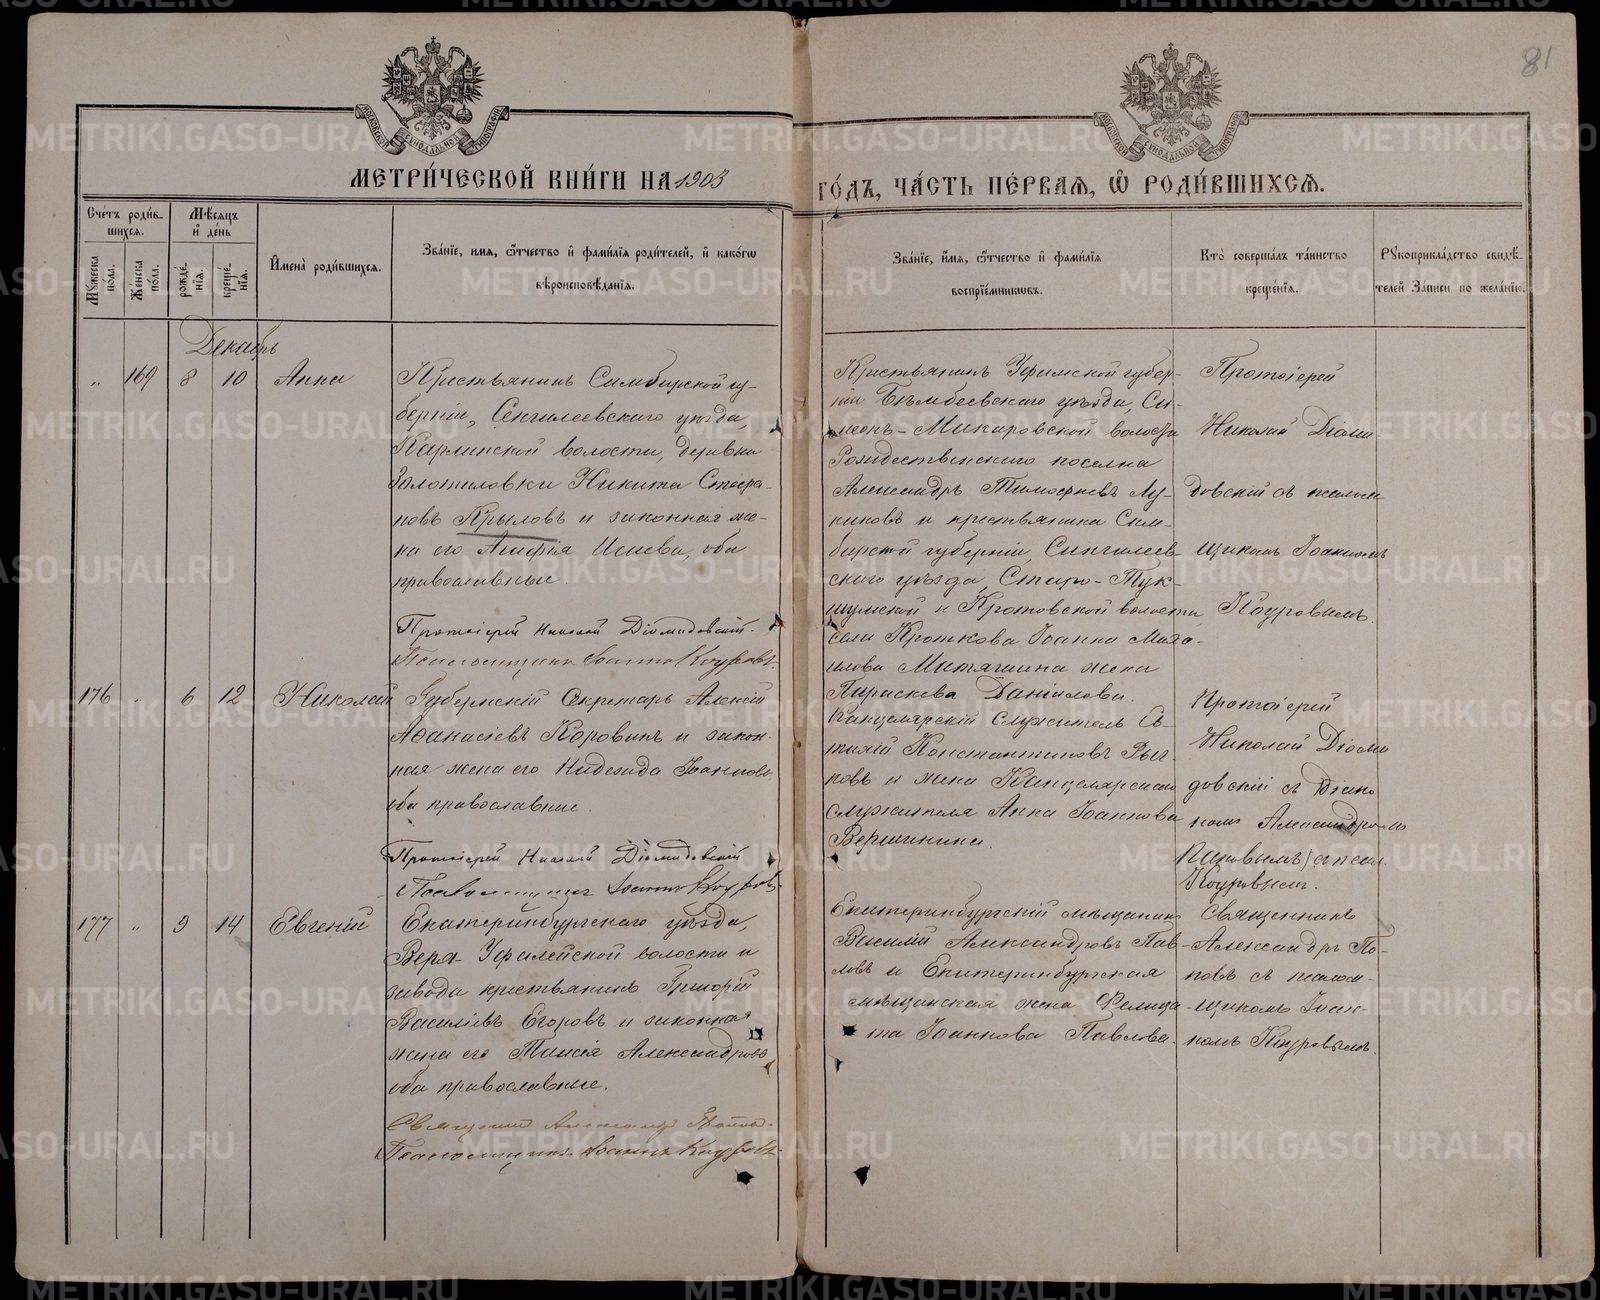 81
МОСКОВСКОЙ СѴНОДАЛЬНОЙ ТИПОГРАФІИ
МОСКОВСКОЙ СѴНОДАЛЬНОЙ ТИПОГРАФІИ
МЕТРИ́ЧЕСКОЙ КНИ́ГИ НА 1903
ГО́ДЪ, ЧА́СТЬ ПЕ́РВАѦ, Ѡ҆ РОДИ́ВШИХСѦ.
Сче́тъ роди́в-
шихсѧ.
Мꙋ́жеска по́ла.
Же́нска по́ла.
Мѣ́сѧцъ
и҆ де́нь
рожде́-
нїѧ.
креще́-
нїѧ.
И҆мена̀ роди́вшихсѧ.
Зва́нїе, имѧ, ѻ҆́тчество и҆ фами́лїѧ роди́телей, и҆ како́гѡ
вѣроисповѣ́данїѧ.
Зва́нїе, и҆́мѧ, ѻ҆́тчество и҆ фами́лїѧ
воспрїе́мникѡвъ.
Кто̀ соверша́лъ та́инство
креще́нїѧ.
Рꙋкоприкла́дство свидѣ́-
телей за́писи по жела́нїю.
Декабрь
„ 169 8 10 Анна
Крестьянинъ Симбирской гу-
берніи, Сенгилеевскаго уѣзда,
Карлинской волости, деревни
Золотиловки Никита Стефа-
новъ Крыловъ и законная же-
на его Агафія Исаева, оба
православные.
Протоіерей Николай Діомидовскій.
Псаломщикъ Іоаннъ Коуровъ.
Крестьянинъ Уфимской губер-
ніи Белебеевскаго уѣзда, Си-
меонъ-Макаровской волости
Рождественскаго поселка
Александръ Тимофеевъ Лу-
киновъ и крестьянина Сим-
бирской губерніи, Сингилеев-
скаго уѣзда, Старо-Тук-
шумской и Кротовской волости
села Кроткова Іоанна Миха-
илова Митягина жена
Параскева Даніилова.
Протоіерей
Николай Діоми-
довскій съ псалом-
щикомъ Іоанномъ
Коуровымъ.
176 „ 6 12 Николай
Губернскій Секретарь Алексій
Аѳанасіевъ Коровинъ и закон-
ная жена его Надежда Іоаннова
оба православные.
Протоіерей Николай Діомидовскій
Псаломщикъ Іоаннъ Коуровъ.
Канцелярскій служитель
Константиновъ
новъ и жена Канцелярскаго
служителя Анна Іоаннова
Вершинина.
Протоіерей
Николай Діоми
довскій съ Діако
номъ Александромъ
и псал.
Коуровымъ.
177 „ 9 14 Евгеній
Екатеринбургскаго уѣзда,
Верх-Уфалейской волости и
завода крестьянинъ Григорій
Василіевъ Егоровъ и законная
жена его Таисія Александрова
оба православные.
Священникъ Александръ Поповъ.
Псаломщикъ Іоаннъ Коуровъ.
Екатеринбургскій мѣщанинъ
Василій Александровъ Пав-
ловъ и Екатеринбургская
мѣщанская жена Фелица-
та Іоаннова Павлова.
Священникъ
Александръ По-
повъ съ псалом-
щикомъ Іоан-
номъ Коуровымъ.
METRIKI.GASO-URAL.RU